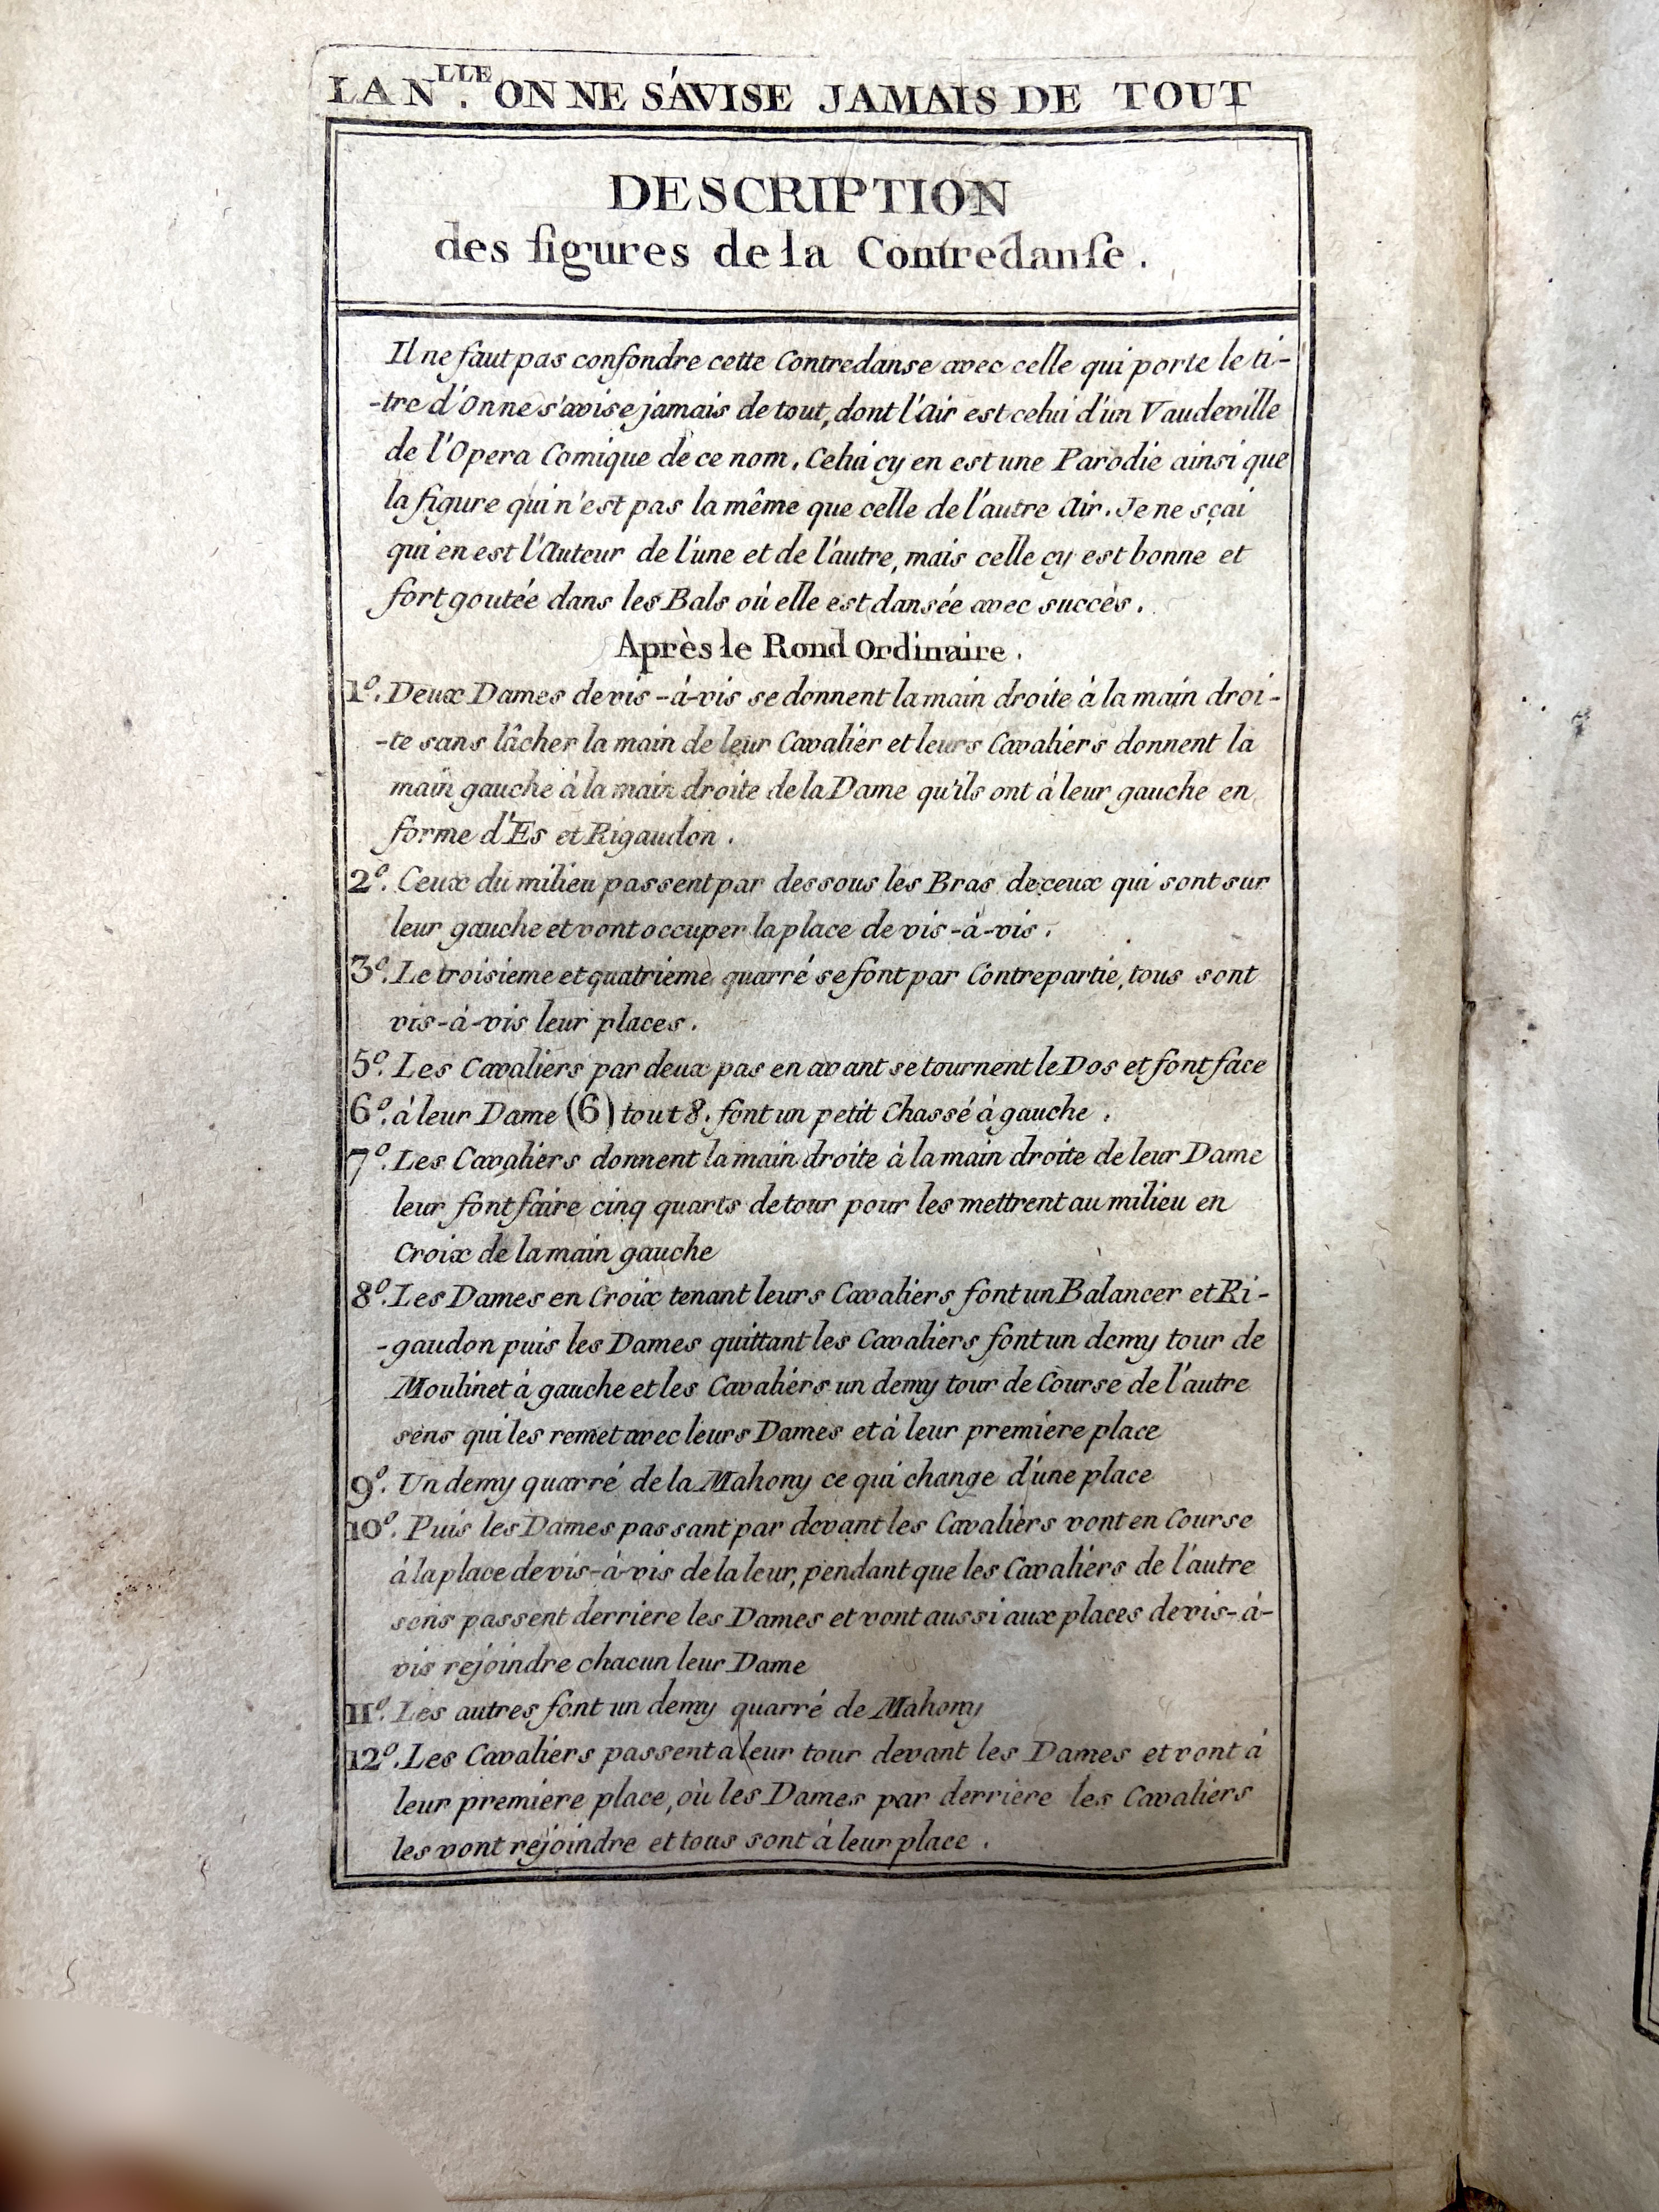 LA N.LLE ON NE S'AVISE JAMAIS DE TOUT
DESCRIPTION
des figures de la Contredanse.
Il ne faut pas confondre cette Contredanse avec celle qui porte le ti-
-tre d'On ne s'avise jamais de tout, dont l'Air est celui d'un Vaudeville
de l'Opera Comique de ce nom. Celui cy en est une Parodie ainsi que
la figure qui n'est pas la même que celle de l'autre Air. Je ne sçai
qui en est l'Auteur de l'une et de l'autre, mais celle cy est bonne et
fort goutée dans les Bals où elle est dansée avec succès.
Après le Rond Ordinaire.
1º. Deux Dames de vis-à-vis se donnent la main droite à la main droi-
-te sans lâcher la main de leur Cavalier et leurs Cavaliers donnent la
main gauche à la main droite de la Dame qu'ils ont à leur gauche en
forme d'Es et Rigaudon.
2º. Ceux du milieu passent par dessous les Bras de ceux qui sont sur
leur gauche et vont occuper la place de vis-à-vis.
3º. Le troisieme et quatrieme quarré se font par Contrepartie, tous sont
vis-à-vis leur places.
5º. Les Cavaliers par deux pas en avant se tournent le Dos et font face
6º. à leur Dame (6) tout 8. font un petit Chassé à gauche.
7º. Les Cavaliers donnent la main droite à la main droite de leur Dame
leur font faire cinq quarts de tour pour les mettrent au milieu en
Croix de la main gauche
8º. Les Dames en Croix tenant leurs Cavaliers font un Balancer et Ri-
-gaudon puis les Dames quittant les Cavaliers font un demy tour de
Moulinet à gauche et les Cavaliers un demy tour de Course de l'autre
sens qui les remet avec leurs Dames et à leur premiere place
9º. Un demy quarré de la Mahony ce qui change d'une place
10º. Puis les Dames passant par devant les Cavaliers vont en Course
à la place de vis-à-vis de la leur, pendant que les Cavaliers de l'autre
sens passent derriere les Dames et vont aussi aux places de vis-à-
vis rejoindre chacun leur Dame
11º. Les autres font un demy quarré de Mahony
12º. Les Cavaliers passent a leur tour devant les Dames et vont à
leur premiere place, où les Dames par derriere les Cavaliers
les vont rejoindre et tous sont à leur place.